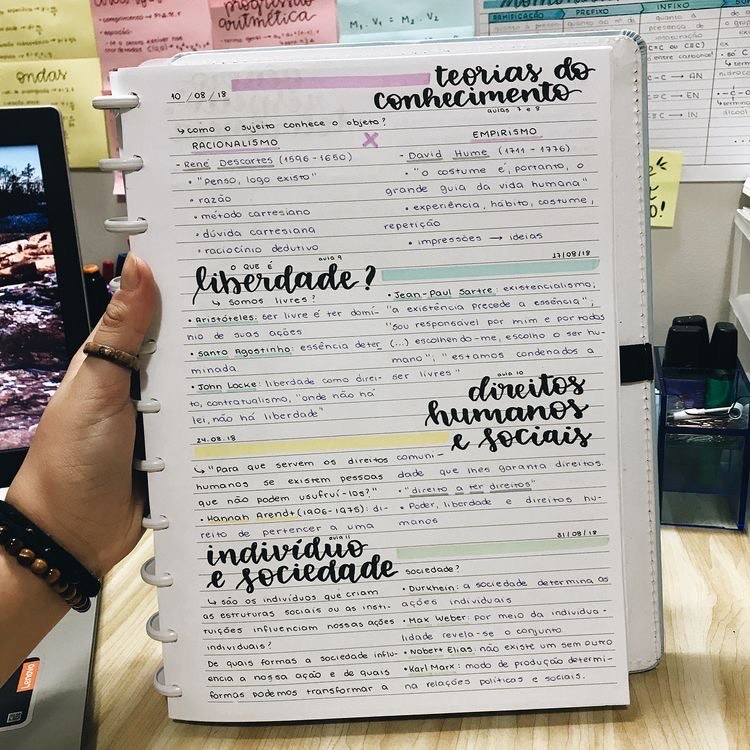 progressão
aritmética
M₁. V₁ = M₂. V₂
ondas
RAMIFICAÇÃO PREFIXO INFIXO
C=C → AN
→ EN
→ IN
10/08/18
teorias do
conhecimento
aulas 7 e 8
↳ como o sujeito conhece o objeto?
RACIONALISMO X EMPIRISMO
- René Descartes (1596-1650)
• "Penso, logo existo"
• razão
• método cartesiano
• dúvida cartesiana
• raciocínio dedutivo
- David Hume (1711-1776)
• "o costume é, portanto, o
grande guia da vida humana"
• experiência, hábito, costume,
repetição
• impressões → ideias
17/08/18
O QUE É aula 9
liberdade?
↳ somos livres?
• Aristóteles: ser livre é ter domí-
nio de suas ações
• Santo Agostinho: essência deter
minada
• John Locke: liberdade como direi-
to, contratualismo, "onde não há
lei, não há liberdade"
• Jean-Paul Sartre: existencialismo,
"a existência precede a essência";
"sou responsável por mim e por todos
(...) escolhendo-me, escolho o ser hu-
mano"; "estamos condenados a
ser livres"
aula 10
direitos
humanos
e sociais
24.08.18
↳ "Para que servem os direitos
humanos se existem pessoas
que não podem usufruí-los?"
• Hannah Arendt (1906-1975): di-
reito de pertencer a uma
comuni-
dade que lhes garanta direitos.
• "direito a ter direitos"
• Poder, liberdade e direitos hu-
manos
31/08/18
aula 11
indivíduo
e sociedade
↳ são os indivíduos que criam
as estruturas sociais ou as insti-
tuições influenciam nossas ações
individuais?
De quais formas a sociedade influ-
encia a nossa ação e de quais
formas podemos transformar a
sociedade?
• Durkheim: a sociedade determina as
ações individuais
• Max Weber: por meio da individua-
lidade revela-se o conjunto
• Nobert Elias: não existe um sem outro
• Karl Marx: modo de produção determi-
na relações políticas e sociais.
Lenovo